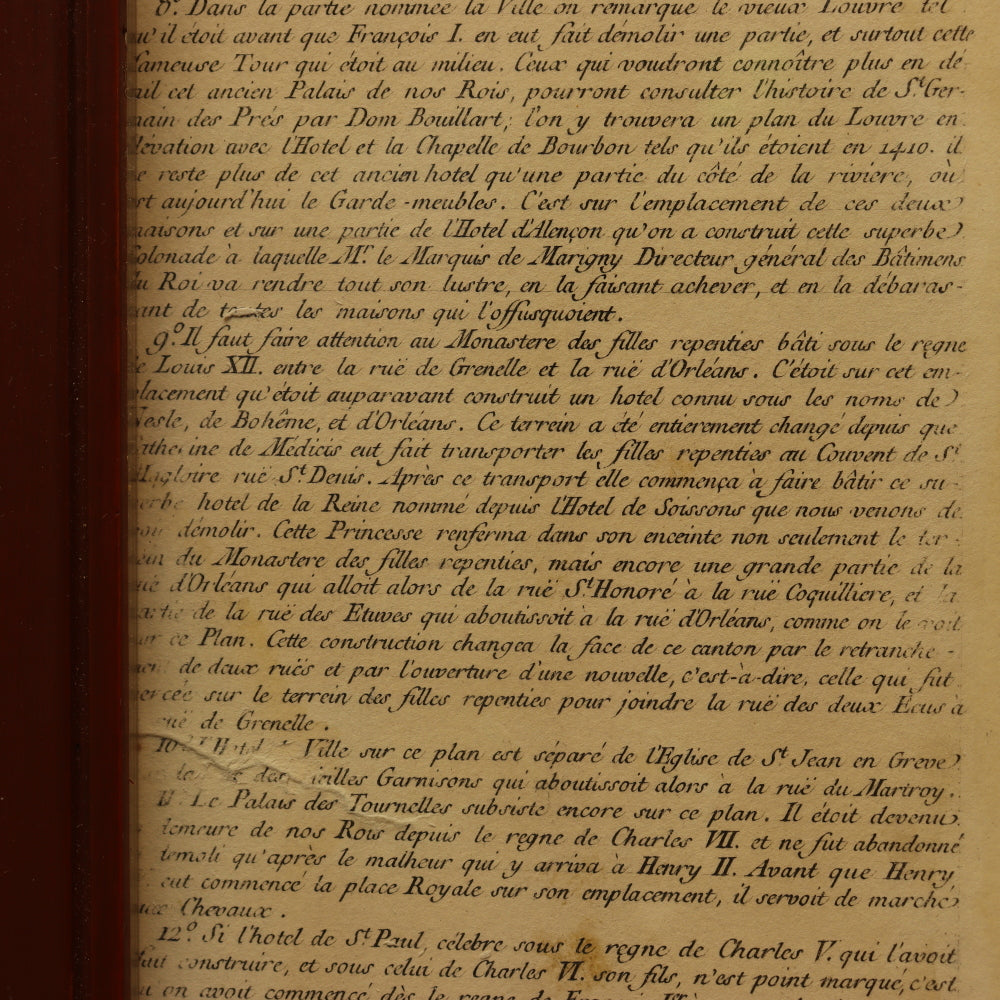 8º. Dans la partie nommée la Ville on remarque le vieux Louvre tel
qu'il étoit avant que François I. en eut fait démolir une partie, et surtout cette
fameuse Tour qui étoit au milieu. Ceux qui voudront connoître plus en dé-
ail cet ancien Palais de nos Rois, pourront consulter l'histoire de St. Ger-
main des Prés par Dom Bouillart; l'on y trouvera un plan du Louvre en
élévation avec l'Hotel et la Chapelle de Bourbon tels qu'ils étoient en 1410. il
e reste plus de cet ancien hotel qu'une partie du côté de la riviere, où
st aujourd'hui le Garde-meubles. C'est sur l'emplacement de ces deux
maisons et sur une partie de l'Hotel d'Alençon qu'on a construit cette superbe
Colonade à laquelle Mr. le Marquis de Marigny Directeur général des Bâtimens
du Roi va rendre tout son lustre, en la faisant achever, et en la débaras-
sant de toutes les maisons qui l'offusquoient.
9º. Il faut faire attention au Monastere des filles repenties bâti sous le regne
de Louis XII. entre la ruë de Grenelle et la ruë d'Orléans. C'étoit sur cet em-
placement qu'étoit auparavant construit un hotel connu sous les noms de
Nesle, de Bohême, et d'Orléans. Ce terrein a été entierement changé depuis que
Catherine de Médicis eut fait transporter les filles repenties au Couvent de St.
Magloire ruë St. Denis. Après ce transport elle commença à faire bâtir ce su-
perbe hotel de la Reine nommé depuis l'Hotel de Soissons que nous venons de
voir démolir. Cette Princesse renferma dans son enceinte non seulement le ter-
rein du Monastere des filles repenties, mais encore une grande partie de la
ruë d'Orléans qui alloit alors de la ruë St. Honoré à la ruë Coquilliere, et la
partie de la ruë des Etuves qui aboutissoit à la ruë d'Orléans, comme on le voit
sur ce Plan. Cette construction changea la face de ce canton par le retranche-
ment de deux ruës et par l'ouverture d'une nouvelle, c'est-à-dire, celle qui fut
percée sur le terrein des filles repenties pour joindre la ruë des deux Ecus à
ruë de Grenelle.
10º. l'Hotel de Ville sur ce plan est séparé de l'Eglise de St. Jean en Greve
des vieilles Garnisons qui aboutissoit alors à la ruë du Martroy.
11. Le Palais des Tournelles subsiste encore sur ce plan. Il étoit devenu
demeure de nos Rois depuis le regne de Charles VII. et ne fut abandonné
démoli qu'après le malheur qui y arriva à Henry II. Avant que Henry
eut commencé la place Royale sur son emplacement, il servoit de marché
aux Chevaux.
12º. Si l'hotel de St. Paul, célebre sous le regne de Charles V. qui l'avoit
fait construire, et sous celui de Charles VI. son fils, n'est point marqué, c'est
qu on avoit commencé dès le regne de